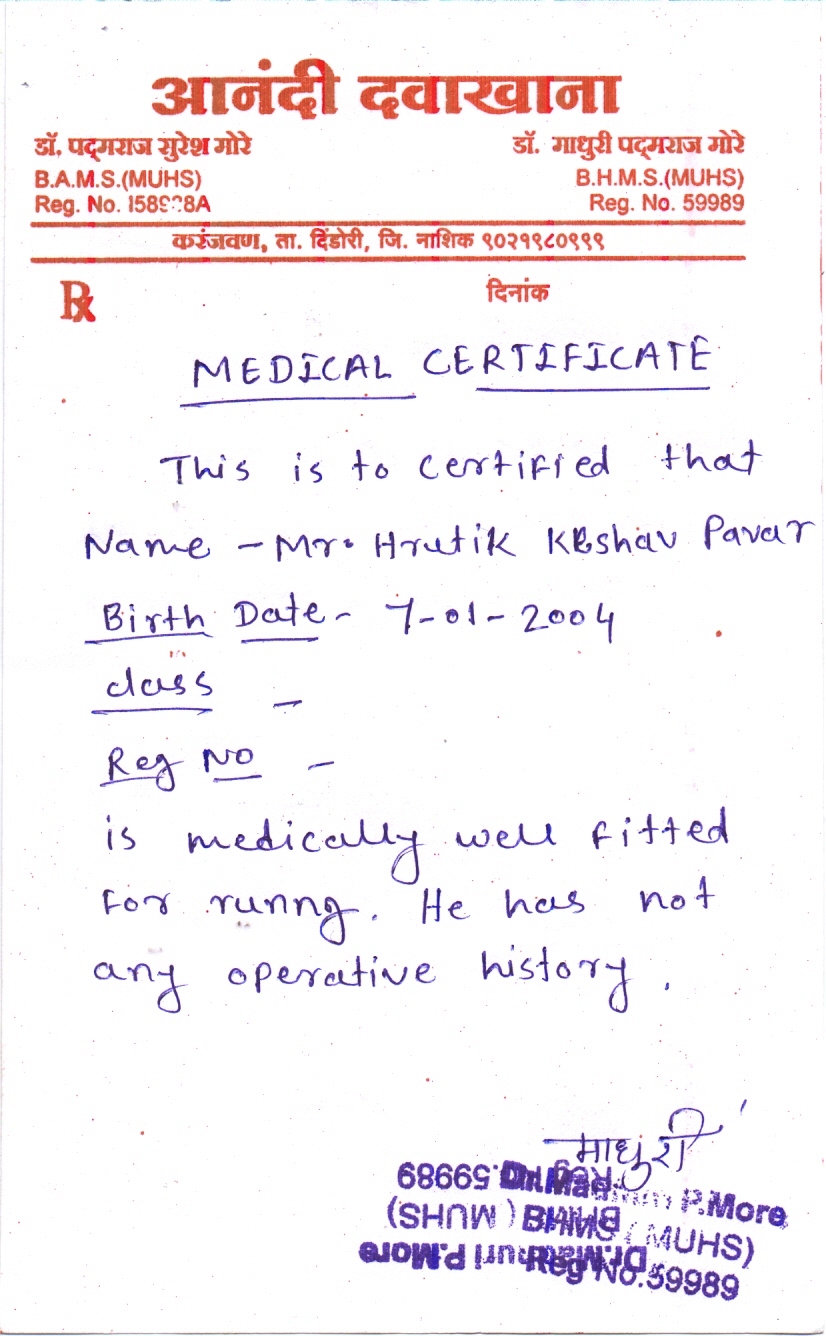 आनंदी दवाखाना
डॉ. पद्मराज सुरेश मोरे
B.A.M.S.(MUHS)
Reg. No.
डॉ. माधुरी पद्मराज मोरे
B.H.M.S.(MUHS)
Reg. No. 59989
करंजवण, ता. दिंडोरी, जि. नाशिक ९०२१९८०९९९
Rx
दिनांक
MEDICAL CERTIFICATE
This is to certified that
Name - Mr. Hrutik Keshav Pavar
Birth Date - 7-01-2004
class -
Reg No -
is medically well fitted
For runng. He has not
any operative history.
माधुरी
Dr. Madhuri P.More
BHMS (MUHS)
Reg No.59989
Dr.Madhuri P.More
BHMS (MUHS)
Reg No.59989